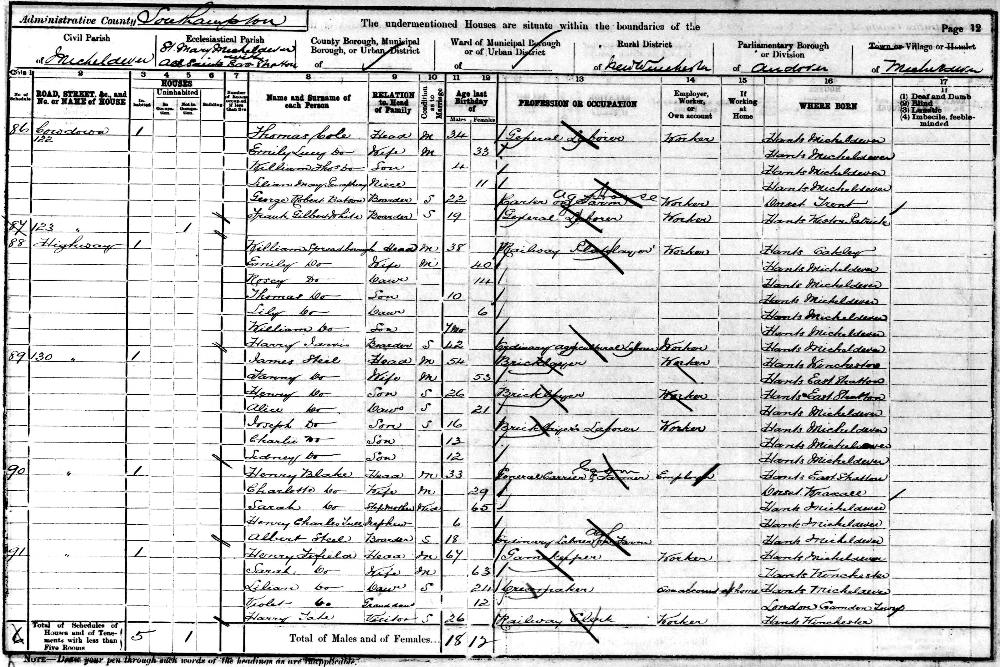 Administrative County Southampton
The undermentioned Houses are situate within the boundaries of the
Page 12
Civil Parish
of Micheldever
Ecclesiastical Parish
St Mary Micheldever
County Borough, Municipal Borough, or Urban District
of
Ward of Municipal Borough or of Urban District
of
Rural District
of New Winchester
Parliamentary Borough or Division
of Andover
Town or Village or Hamlet
of Micheldever
Cols. 1 2 3 4 5 6 7 8 9 10 11 12 13 14 15 16 17
No. of Schedule
ROAD, STREET, &c., and No. or NAME of HOUSE
HOUSES
Inhabited
Uninhabited
In Occupation
Not in Occupation
Building
Name and Surname of each Person
RELATION to Head of Family
Condition as to Marriage
Age last Birthday of
Males Females
PROFESSION OR OCCUPATION
Employer, Worker, or Own account
If Working at Home
WHERE BORN
If
(1) Deaf and Dumb
(2) Blind
(3) Lunatic
(4) Imbecile, feeble-minded
86 122 1 Thomas Cole Head M 34 General Laborer Worker Hants Micheldever
Emily Lucy Do Wife M 33 Hants Micheldever
William Thos Do Son 4 Hants Micheldever
Lilian May Niece 11 Hants Micheldever
George Robert Boarder S 22 Carter on Farm Worker Dorset Trent
Frank Gilbert White Boarder S 19 General Laborer Worker Hants Weston Patrick
87 123 " 1
88 Highway 1 William Head M 38 Railway Platelayer Worker Hants Oakley
Emily Do Wife M 40 Hants Micheldever
Rosey Do Daur 14 Hants Micheldever
Thomas Do Son 10 Hants Micheldever
Lily Do Daur 6 Hants Micheldever
William Do Son 7 Mo Hants Micheldever
Harry Boarder S 42 Ordinary agricultural Laborer Worker Hants Micheldever
89 130 " 1 James Steel Head M 54 Bricklayer Worker Hants Winchester
Fanny Do Wife M 53 Hants East Stratton
Henry Do Son S 26 Bricklayer Worker Hants East Stratton
Alice Do Daur S 21 Hants Micheldever
Joseph Do Son S 16 Bricklayer's Laborer Worker Hants Micheldever
Charlie Do Son 13 Hants Micheldever
Sidney Do Son 12 Hants Micheldever
90 " 1 Henry Blake Head M 33 General Carrier & Farmer Hants East Stratton
Charlotte Do Wife M 29 Dorset Wraxall
Sarah Do Stepmother Wid 65 Hants Micheldever
Henry Charles Nephew 6 Hants Micheldever
Albert Steel Boarder S 18 Ordinary Laborer on Farm Hants Micheldever
91 " 1 Henry Fifield Head M 67 Gamekeeper Worker Hants Micheldever
Sarah Do Wife M 63 Hants Winchester
Lilian Do Daur S 24 Dressmaker Own account at home Hants Micheldever
Violet Do 12 London Camden Town
Harry Tate Visitor S 26 Railway Clerk Worker Hants Winchester
6 Total of Schedules of Houses and of Tenements with less than Five Rooms 5 1
Total of Males and of Females... 18 12
NOTE—Draw your pen through such words of the headings as are inapplicable.